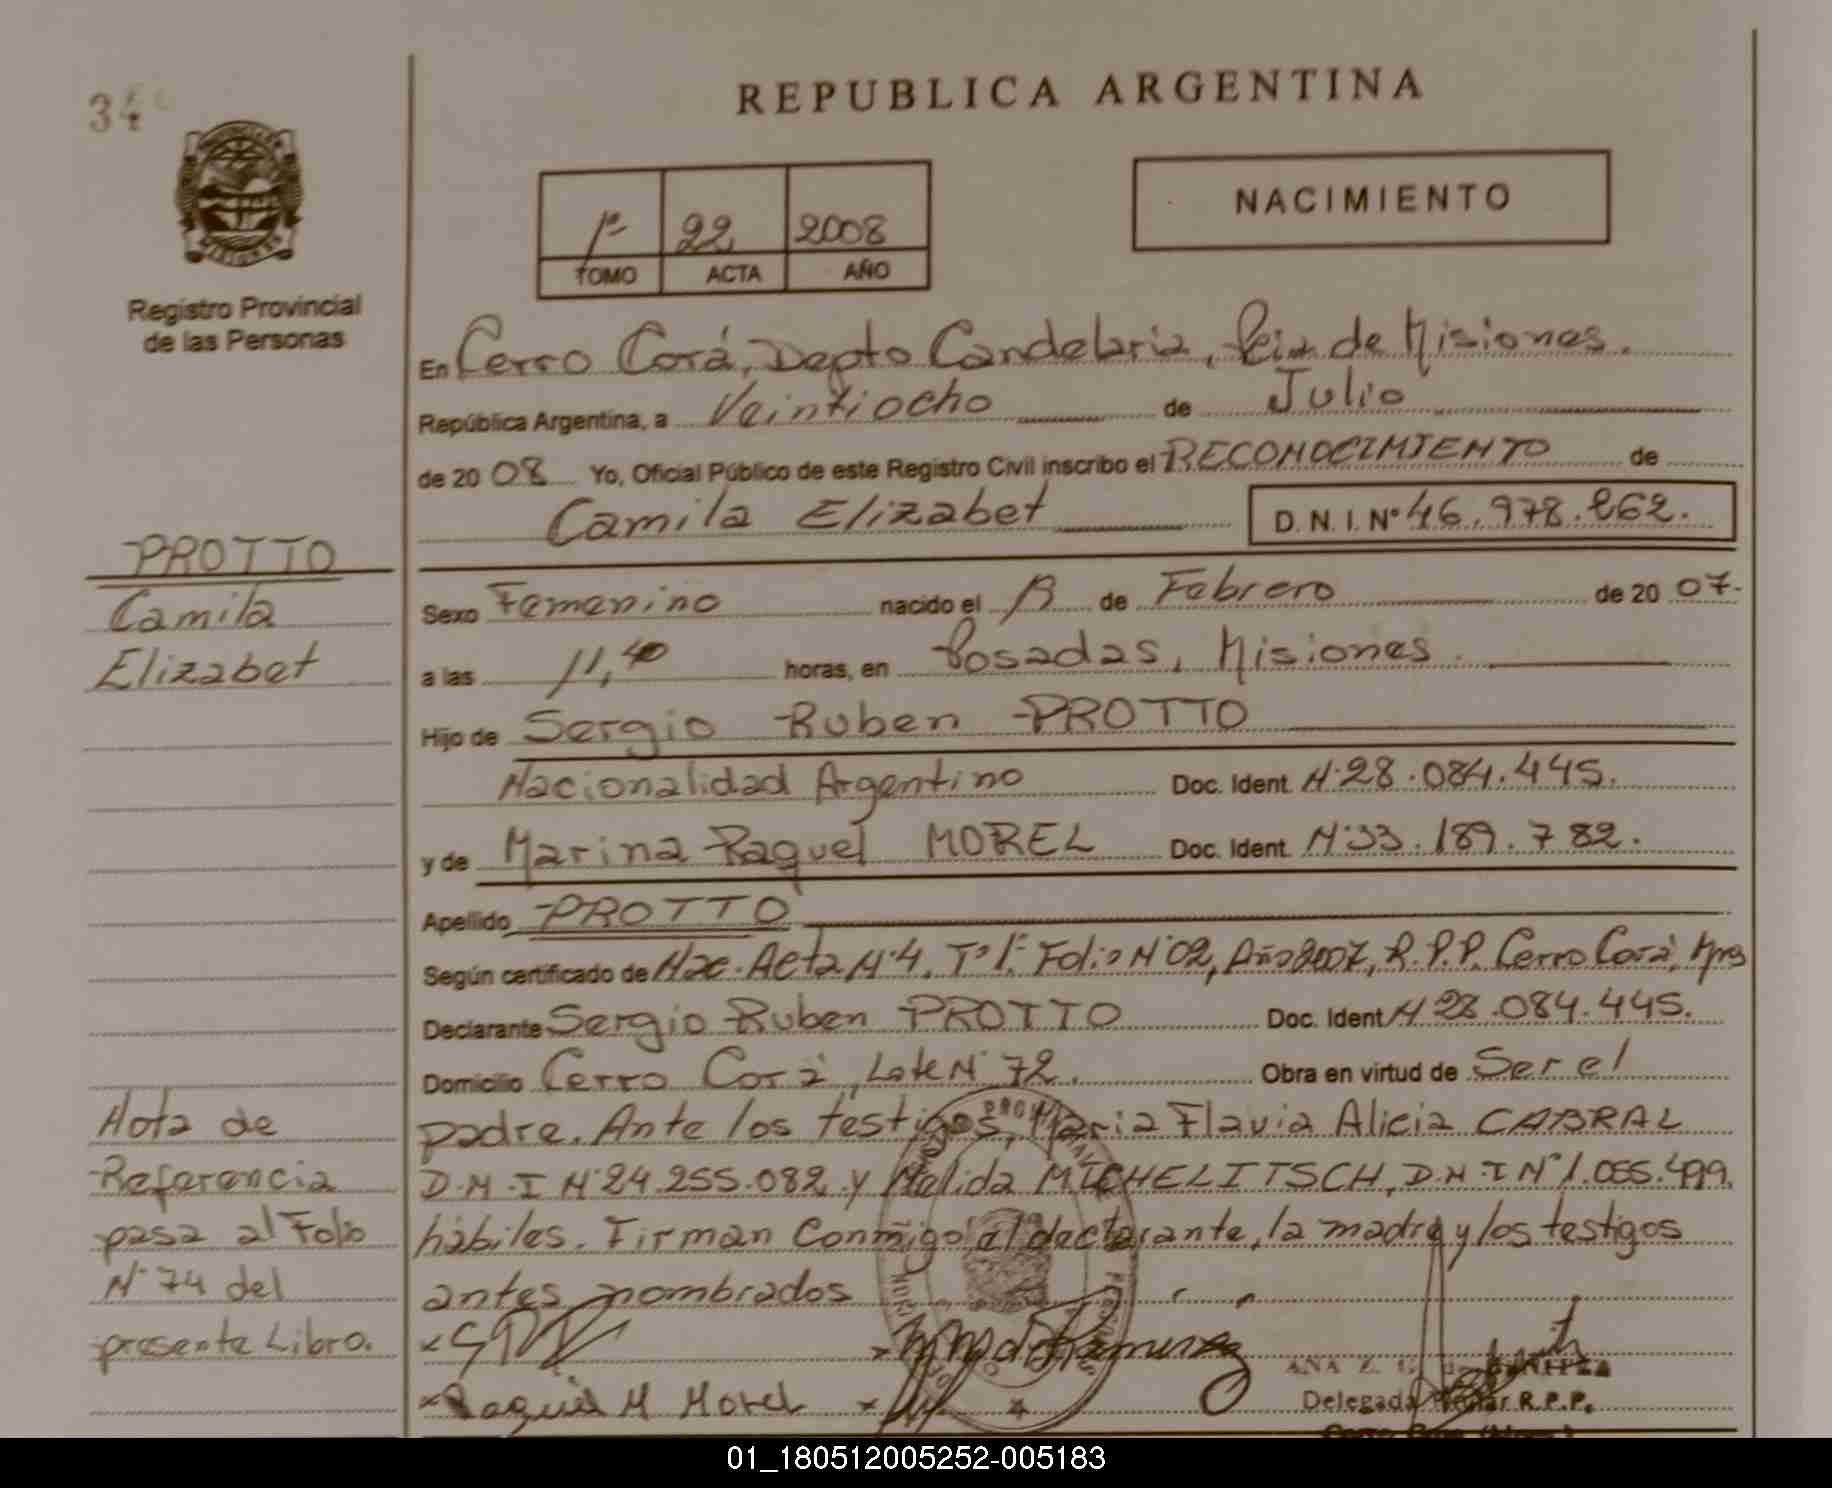 34
REPUBLICA ARGENTINA
NACIMIENTO
1º 22 2008
TOMO ACTA AÑO
Registro Provincial
de las Personas
En Cerro Corá, Depto Candelaria, Pcia de Misiones.
República Argentina, a Veintiocho de Julio
de 20 08 Yo, Oficial Público de este Registro Civil inscribo el RECONOCIMIENTO de
Camila Elizabet D.N.I. Nº 46.978.262.
PROTTO
Camila
Elizabet
Sexo Femenino nacido el de Febrero de 20 07.
a las 11,40 horas, en Posadas, Misiones.
Hijo de Sergio Ruben PROTTO
Nacionalidad Argentino Doc. Ident. Nº 28.084.445.
y de Marina Raquel MOREL Doc. Ident. Nº 33.189.782.
Apellido PROTTO
Según certificado de Nac. Acta Nº 4. Tº 1º Folio Nº 02, Año 2007, R.P.P. Cerro Corá, Mnes
Declarante Sergio Ruben PROTTO Doc. Ident Nº 28.084.445.
Domicilio Cerro Corá, Lote Nº 72. Obra en virtud de Ser el
padre. Ante los testigos, Maria Flavia Alicia CABRAL
D.N.I Nº 24.255.082 y Nelida MICHELITSCH, D.N.I Nº 1.055.499.
hábiles. Firman Conmigo el declarante, la madre y los testigos
antes nombrados
Nota de
Referencia
pasa al Folio
Nº 74 del
presente Libro.
Raquel M Morel
ANA Z. BENITEZ
Delegada Titular R.P.P.
01_180512005252-005183